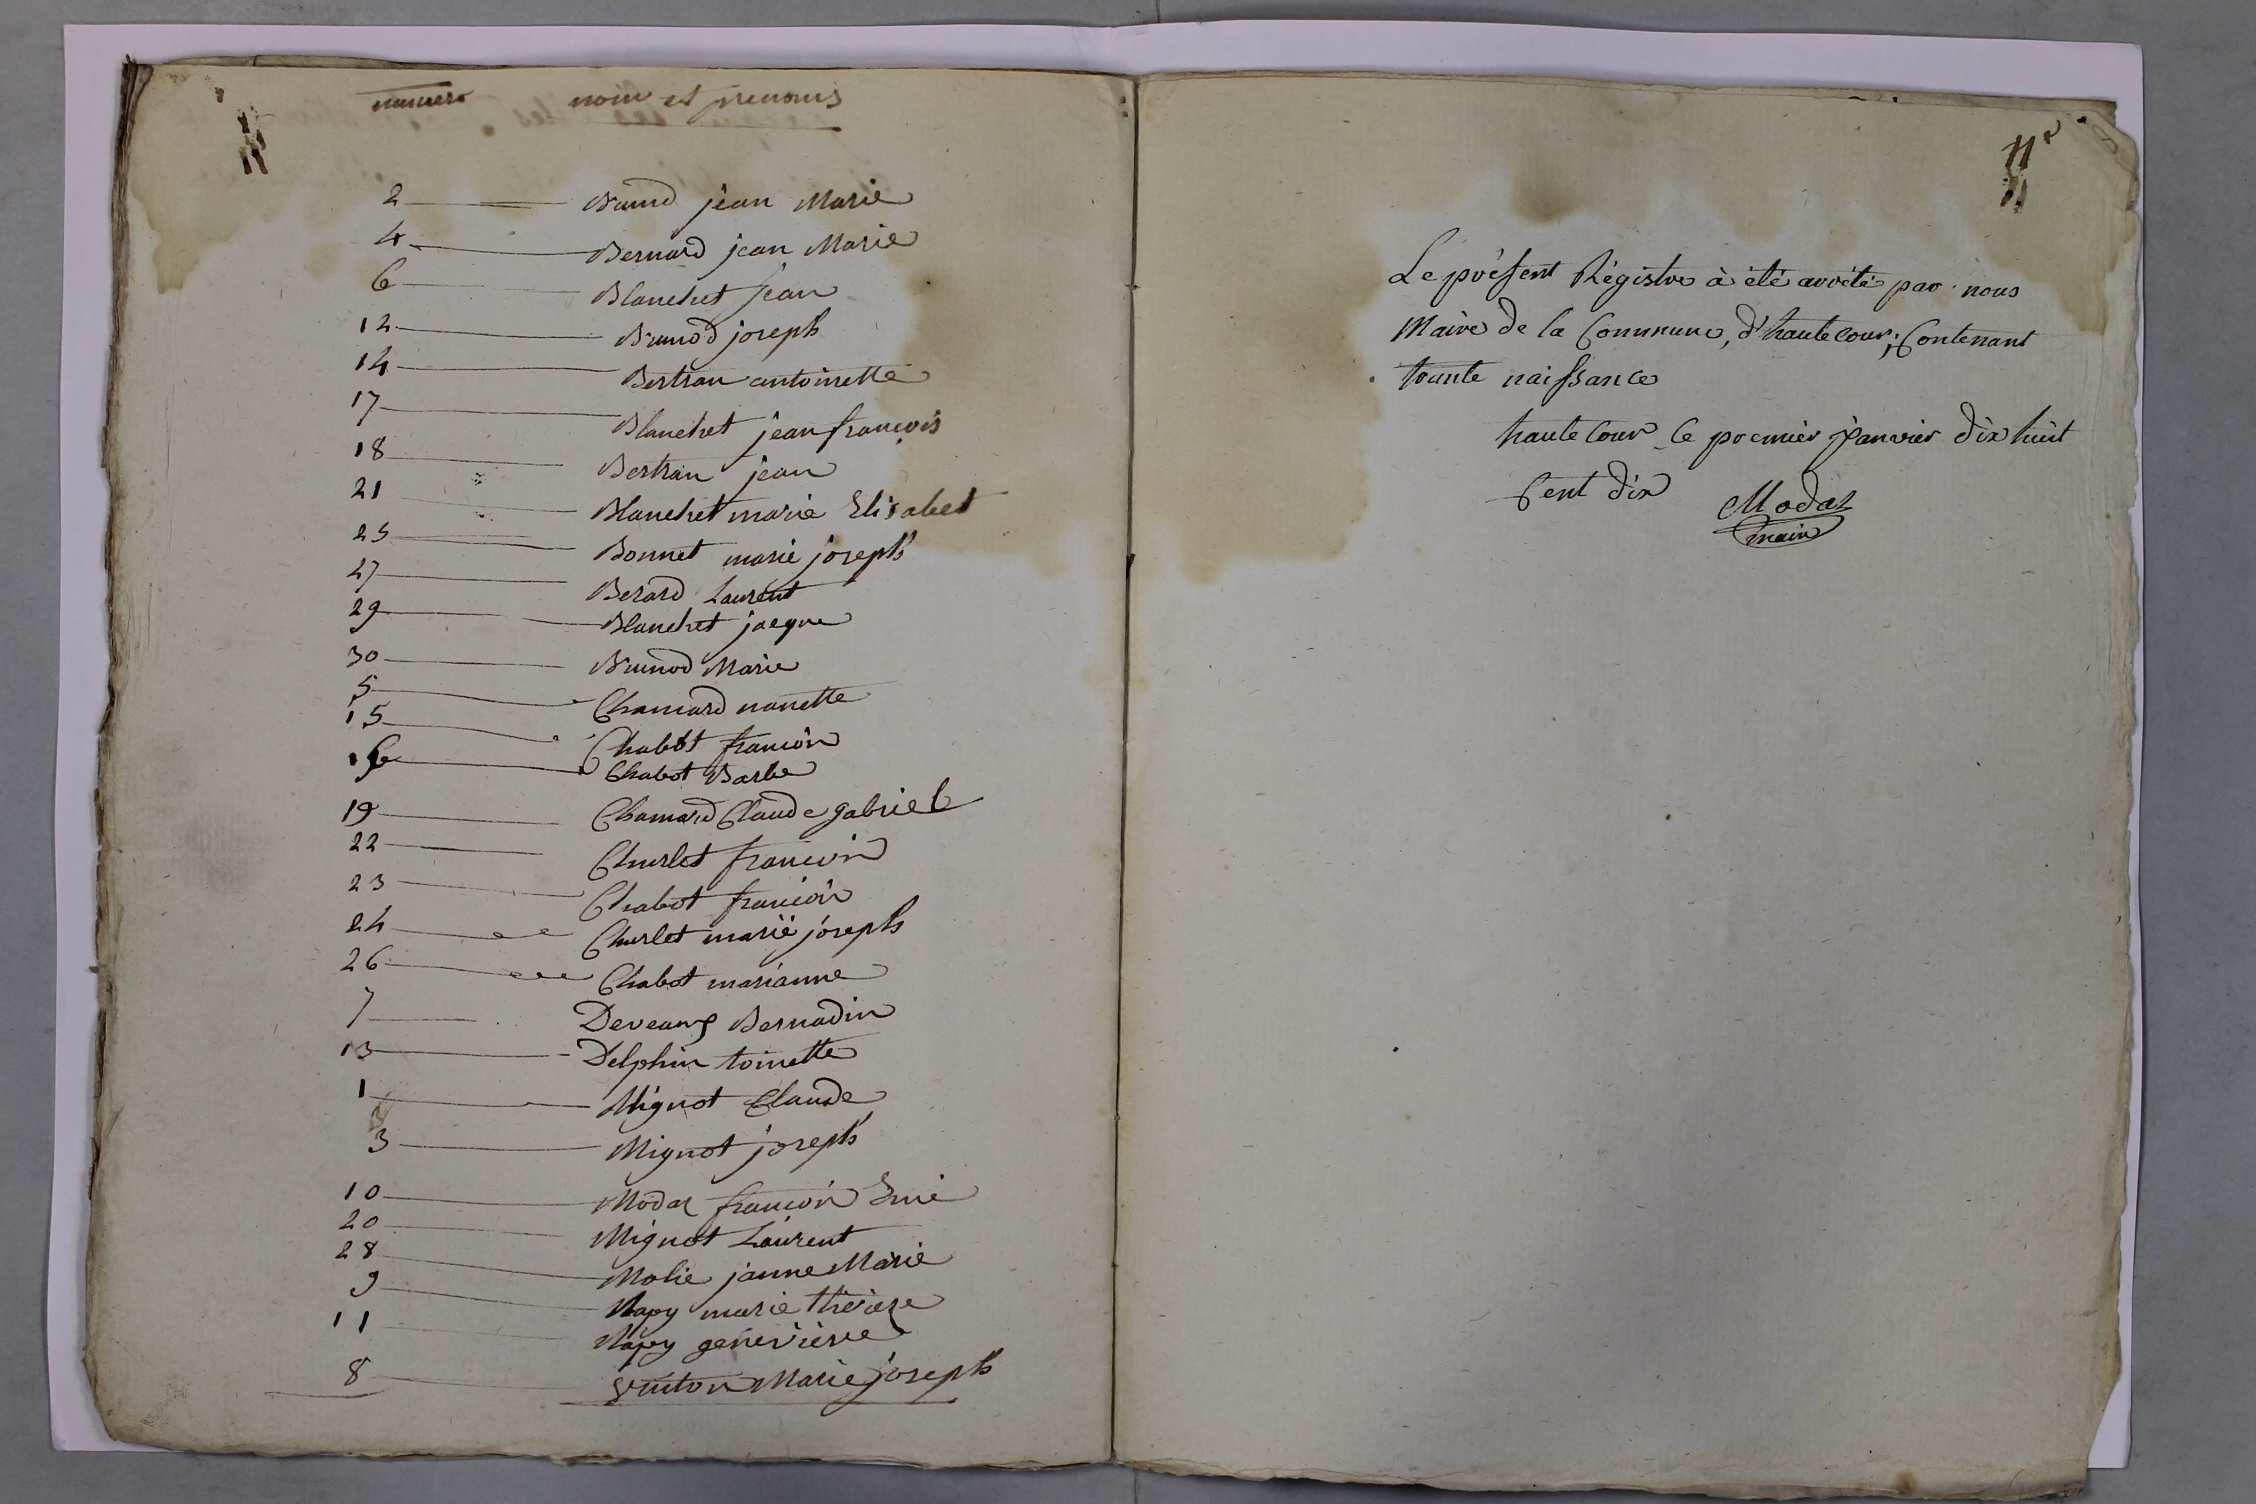 numero nom et prenoms
2 Brunod jean Marie
4 Bernard jean Marie
6 Blanchet jean
12 Brunod joseph
14 Bertran antoinette
17 Blanchet jean françois
18 Bertran jean
21 Blanchet marie Elisabet
25 Bonnet marie joseph
27 Berard Laurent
29 Blanchet jacque
30 Brunod Marie
5 Chamard nanette
15 Chabot françois
16 Chabot Barbe
19 Chamard Claude gabriel
22 Churlet françois
23 Chabot françois
24 Churlet marie joseph
26 Chabot marianne
7 Deveaux Bernadin
13 Delphin toinette
1 Mignot Claude
3 Mignot joseph
10 Modaz françois
20 Mignot Laurent
28 Molie janne Marie
9 Napy marie
11 Napy genevieve
8 Marie joseph
Le présent Régistre à été arrété par nous
Maire de la Commune, d'hautecour; Contenant
trante naissance
hautecour le premier janvier dix huit
Cent dix Modaz
maire